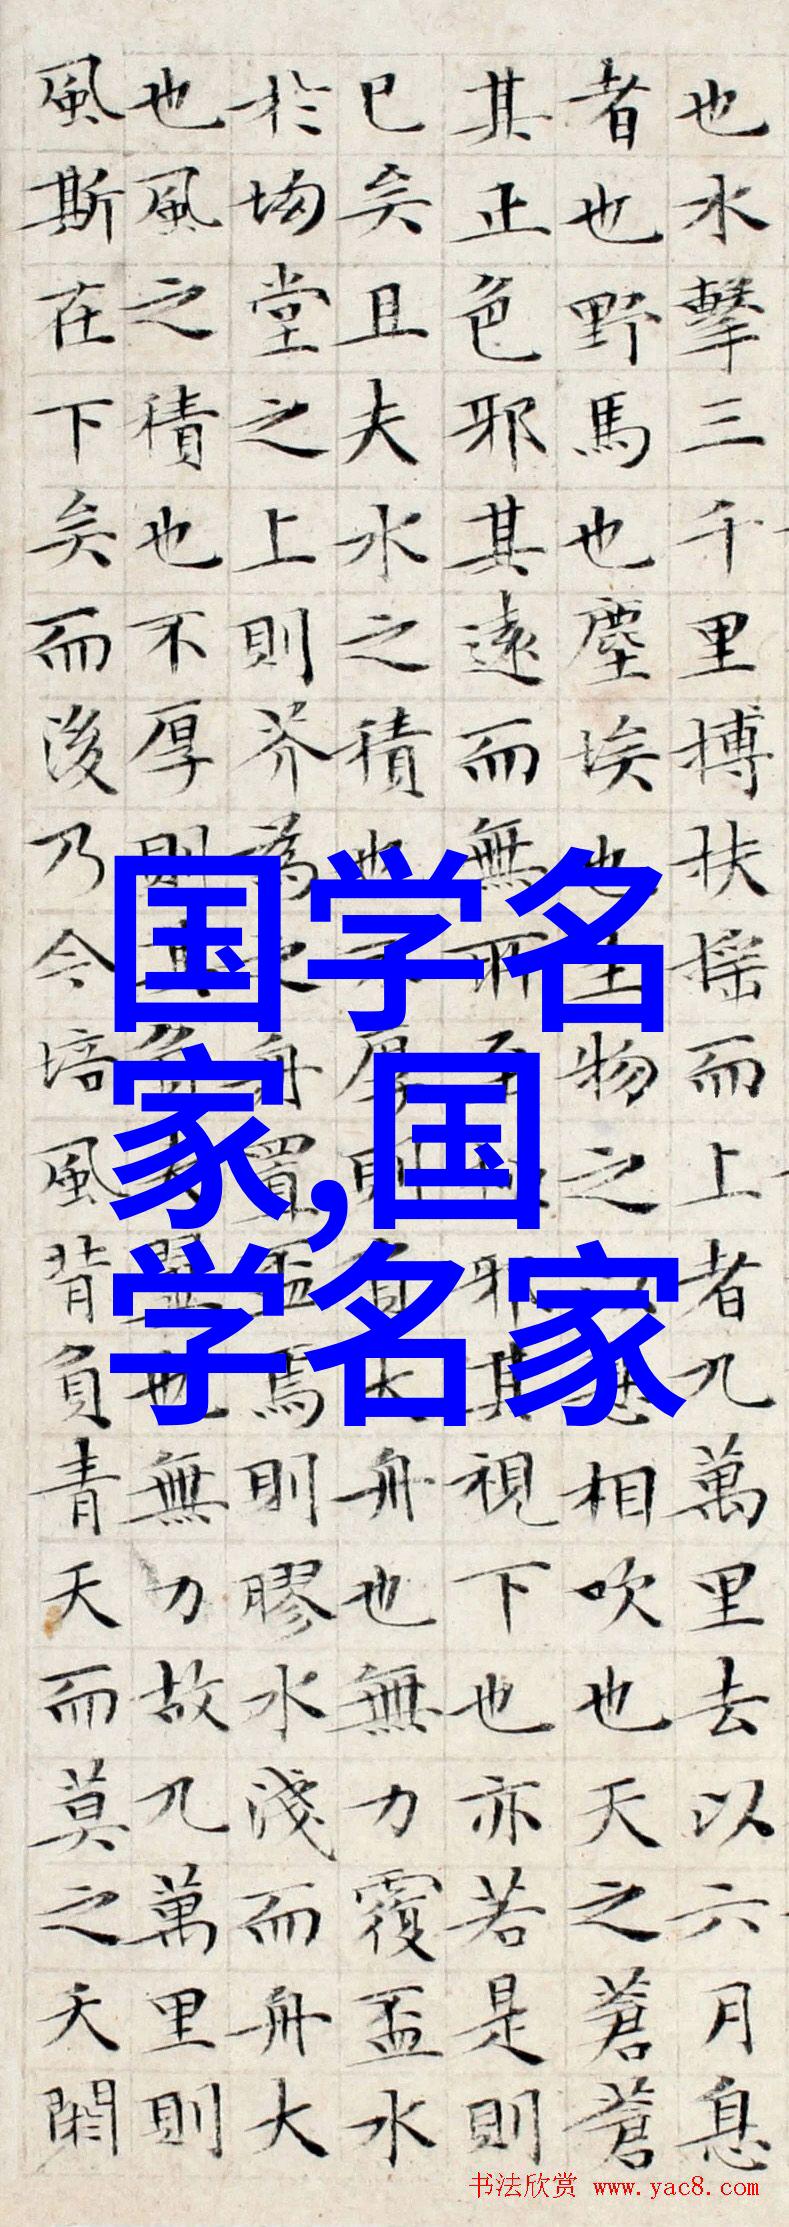 也水擊三千里搏扶摇而上者九萬里去以六月息
者也野馬也塵埃也生物之以息相吹也天之蒼蒼
其正色邪其遠而無所至極邪其視下也亦若是則
已矣且夫水之積也不厚則負大舟也無力覆盃水
於坳堂之上則芥為之舟置盃焉則膠水淺而舟大
也風之積也不厚則其負大翼也無力故九萬里則
風斯在下矣而後乃今培風背負青天而莫之夭閼
国学名
家,国
学名家
书法欣赏 www.yac8.com